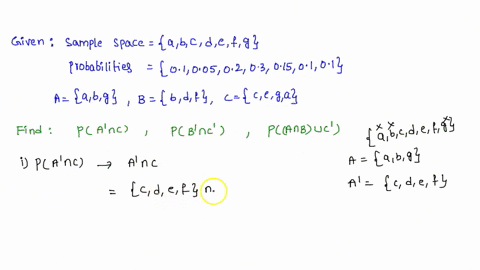 Given: Sample space = {a,b,c,d,e,f,g}
Probabilities = {0.1, 0.05, 0.2, 0.3, 0.15, 0.1, 0.1}
A = {a,b,g} , B = {b,d,f} , C = {c,e,g,a}
Find: P(A'∩C) , P(B'∩C') , P((A∩B)∪C')
{a,b,c,d,e,f,g}
i) P(A'∩C) → A'∩C
A = {a,b,g}
= {c,d,e,f} ∩.
A' = {c,d,e,f}